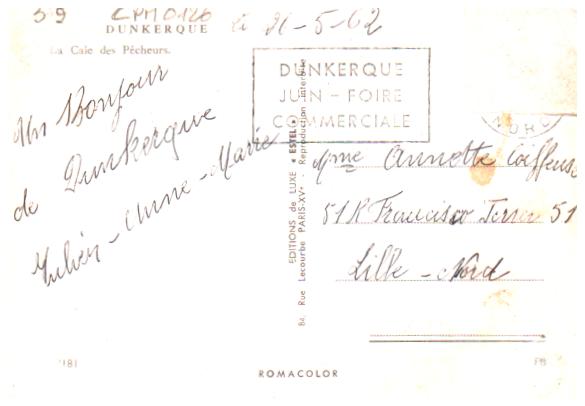 59 CPM 0126
DUNKERQUE
le 26-5-62
La Cale des Pêcheurs.
Un Bonjour
de Dunkerque
Julien - Anne - Marie
DUNKERQUE
JUIN - FOIRE
COMMERCIALE
NORD
EDITIONS de LUXE « ESTEL »
84, Rue Lecourbe PARIS-XVe - Reproduction interdite
Mme Annette Coiffeuse
51 R Francisco Ferrer 51
Lille - Nord
181
ROMACOLOR
PB